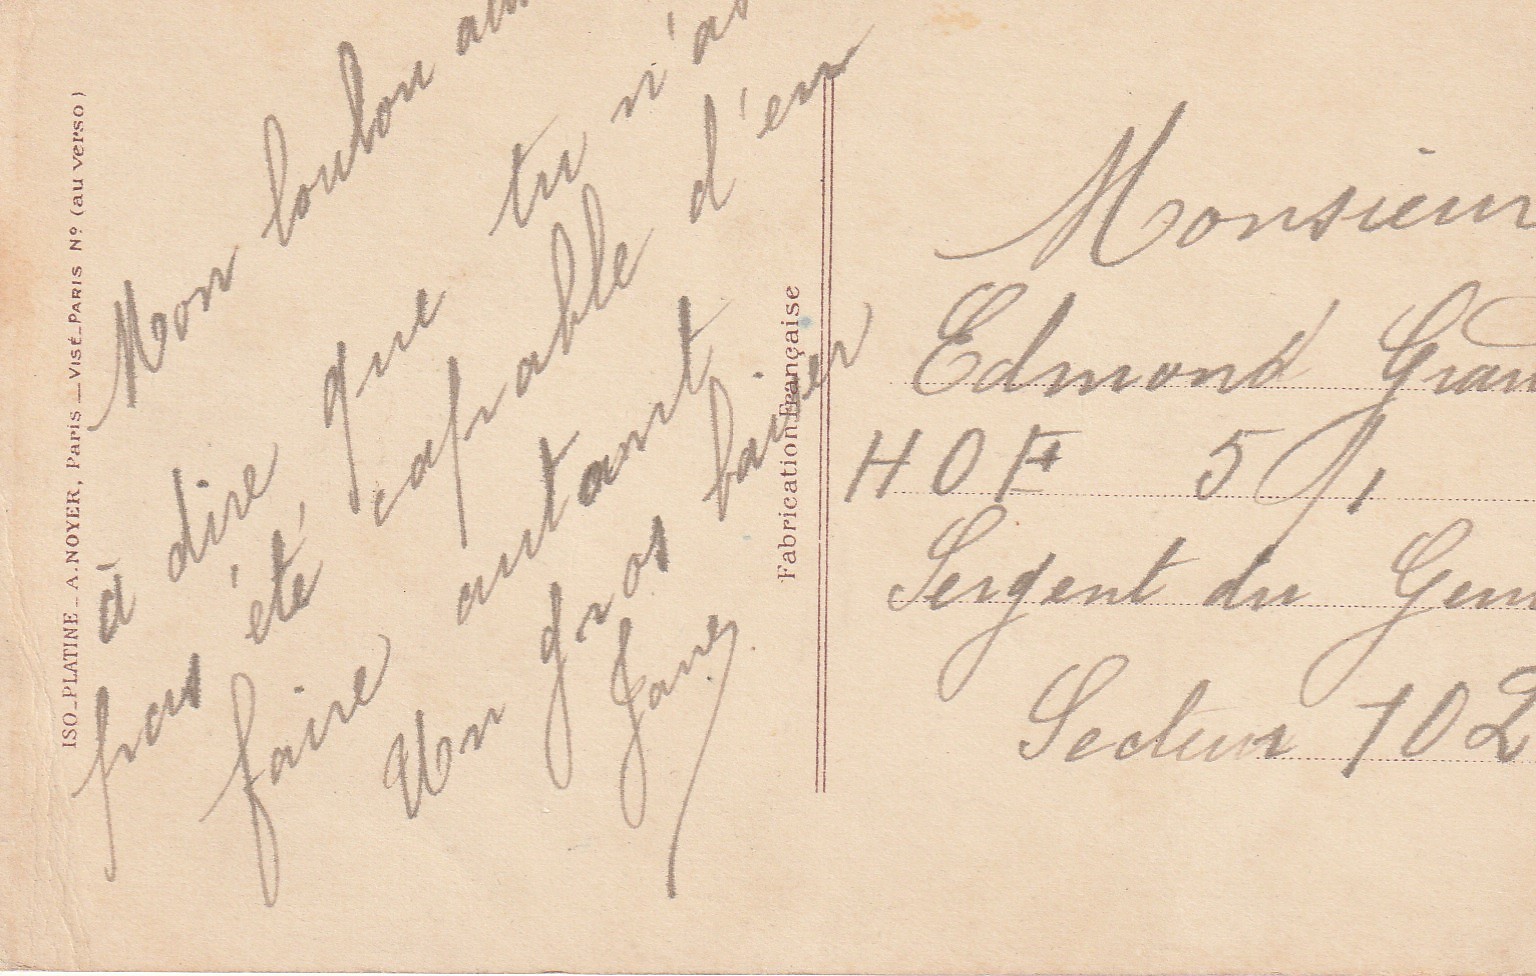 ISO_PLATINE _ A. NOYER, Paris _ VISÉ_PARIS Nº (au verso)
Mon loulou
à dire que tu n'as
pas été capable d'en
faire autant
Un gros baiser
Fabrication Française
Monsieur
Edmond
HOE 51
Sergent du
Secteur 102